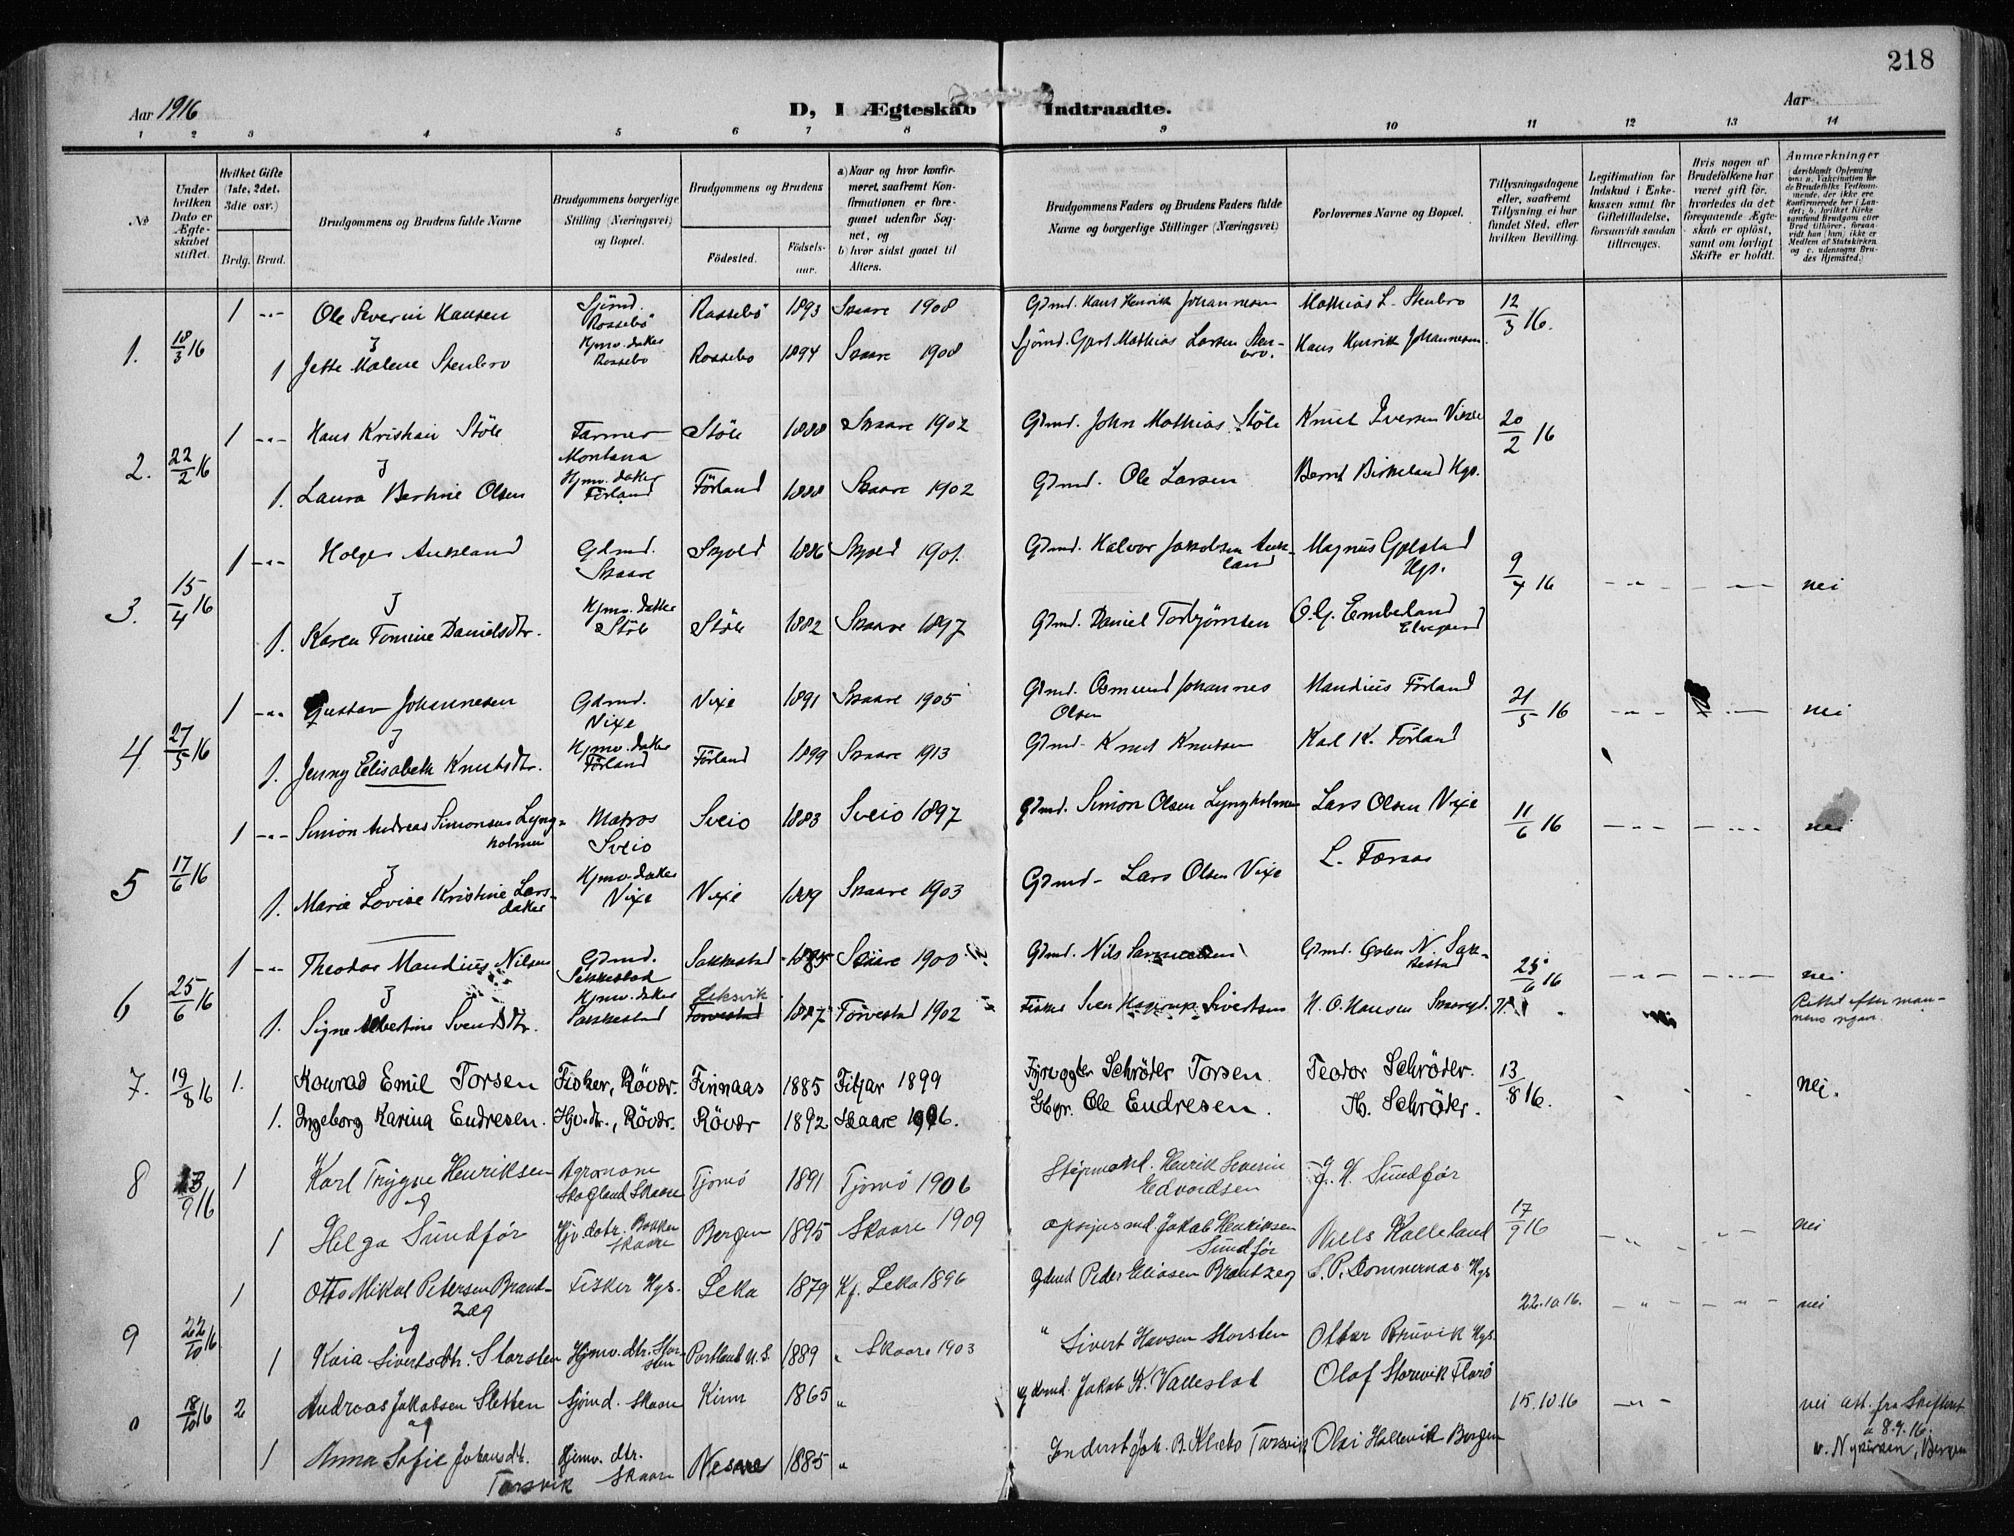 218
Aar 1916
D, I Ægteskab Indtraadte.
Aar
1 2 3 4 5 6 7 8 9 10 11 12 13 14
No
Under hvilken Dato er Ægteskabet stiftet.
Hvilket Gifte (1ste, 2det, 3die osv.)
Brdg. Brud.
Brudgommens og Brudens fulde Navne
Brudgommens borgerlige Stilling (Næringsvei) og Bopæl.
Brudgommens og Brudens
Fødested. Fødsels-aar.
a) Naar og hvor konfirmeret, saafremt Konfirmationen er foregaaet udenfor Sognet, og
b) hvor sidst gaaet til Alters.
Brudgommens Faders og Brudens Faders fulde Navne og borgerlige Stillinger (Næringsvei)
Forlovernes Navne og Bopæl.
Tillysningsdagene eller, saafremt Tillysning ei har fundet Sted, efter hvilken Bevilling.
Legitimation for Indskud i Enkekassen samt for Giftetilladelse, forsaavidt saadan tiltrænges.
Hvis nogen af Brudefolkene har været gift før, hvorledes da det foregaaende Ægteskab er opløst, samt om lovligt Skifte er holdt.
Anmærkninger
1. 18/3 16 1 Ole Severin Hansen Sjömd. Rossebö Rossebö 1893 Skaare 1908 Gdmd. Hans Henrik Johannesen Mathias L. Stenbro 12/3 16.
1 Jette Malene Stenbro Hjmv. datter Rossebö Rossebö 1894 Skaare 1908 Sjömd. Gert Mathias Larsen Stenbro. Hans Henrik Johannesen
2. 22/2 16 1 Hans Kristian Støle Farmer Montana Støle 1888 Skaare 1902 Gdmd. John Mathias Støle Knut Iversen Vixe 20/2 16
1. Laura Bertine Olsen Hjmv. datter Förland Förland 1888 Skaare 1902 Gdmd. Ole Larsen Bernt Birkeland Hgs.
3. 15/4 16 1 Holger Aukland Gdmd. Skaare Skjold 1886 Skjold 1901. Gdmd. Halvor Jakobsen Aukland Magnus Gjelstad Hgs. 9/4 16 nei
1. Karen Tomine Danielsdtr. Hjmv. datter Støle Støle 1882 Skaare 1897 Gdmd. Daniel Torbjørnsen O. G. Emberland
4. 27/5 16 1 Gustav Johannesen Gdmd. Vixe Vixe 1891 Skaare 1905 Gdmd. Osmund Johannes Olsen Mandius Förland 21/5 16 nei
1. Jenny Elisabeth Knutsdtr. Hjmv. datter Förland Förland 1899 Skaare 1913 Gdmd. Knut Knutsen Karl K. Förland
5 17/6 16 1 Simon Andreas Simonsen Lyngholmen Matros Sveio Sveio 1883 Sveio 1897 Gdmd. Simon Olsen Lyngholmen Lars Olsen Vixe 11/6 16 nei
1. Marie Lovise Kristine Larsdatter Hjmv. datter Vixe Vixe 1889 Skaare 1903 Gdmd - Lars Olsen Vixe
6 25/6 16 1 Theodor Mandius Nilsen Gdmd. Sakkestad Sakkestad 1885 Skaare 1900 Gdmd. Nils Gdmd. N. Sakkestad 25/6 16 nei
1. Signe Albertine Svendsdtr. Hjmv. datter Sakkestad Leksvik Torvestad 1887 Torvestad 1902 Fisker Sven Sivertsen N. O. Hansen Rettet efter mannens
7. 19/8 16 1. Konrad Emil Torsen Fisker, Röver. Finnaas 1885 Fitjar 1899 Fyrvogter Schröder Torsen. Teodor Schröder. 13/8 16. nei.
1. Ingeborg Karina Endresen. Hjv. dtr., Röver. Röver 1892 Skaare 1906. Ole Endresen. Th. Schröder.
8 /9 16 1 Karl Trygve Henriksen Agronom Skogland Skaare Tjømø 1891 Tjømø 1906 Henrik Severin Edvardsen J. H. Sundfør
og
1 Helga Sundfør Hjv. datr. Skaare Bergen 1895 Skaare 1909 Jakob Henriksen Sundfør Nils Kalleland 17/9 16 nei
9 22/10 16 1 Otto Mikal Petersen Brandtzæg Fisker Hgs. Leka 1879 Kf. Leka 1896 Gdmd Peder Eliasen Brantzeg S. P. Dommersnes Hgs 22.10.16. nei
og
1 Kaia Sivertsdtr. Storsten Hjmv. dtr. Storsten Portland U. S. 1889 " Skaare 1903 " Sivert Hansen Storsten Ottar Bruvik Hgs.
18/10 16 2 Andreas Jakobsen Sletten Sjømd. Skaare Kinn 1865 " Jakob K. Vallestad Olaf Storvik Florø 15.10.16 nei att. fra Skifteret 8.9.16.
og
1 Anna Sofie Johansdtr. Torsvik Hjemv. dtr. Skaare 1885 " Torsvik Bergen v. Nykirken, Bergen